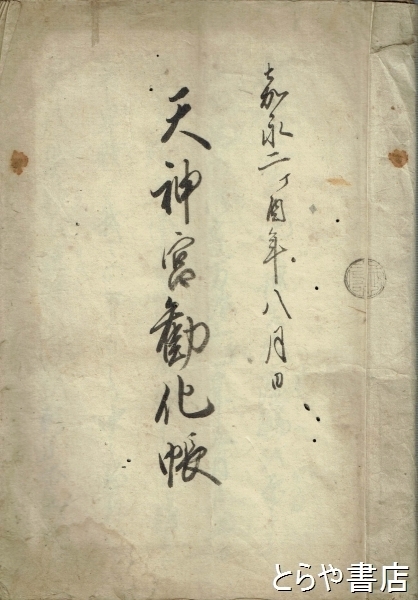 嘉永二丁酉年八月日
天神宮勧化帳
とらや書店